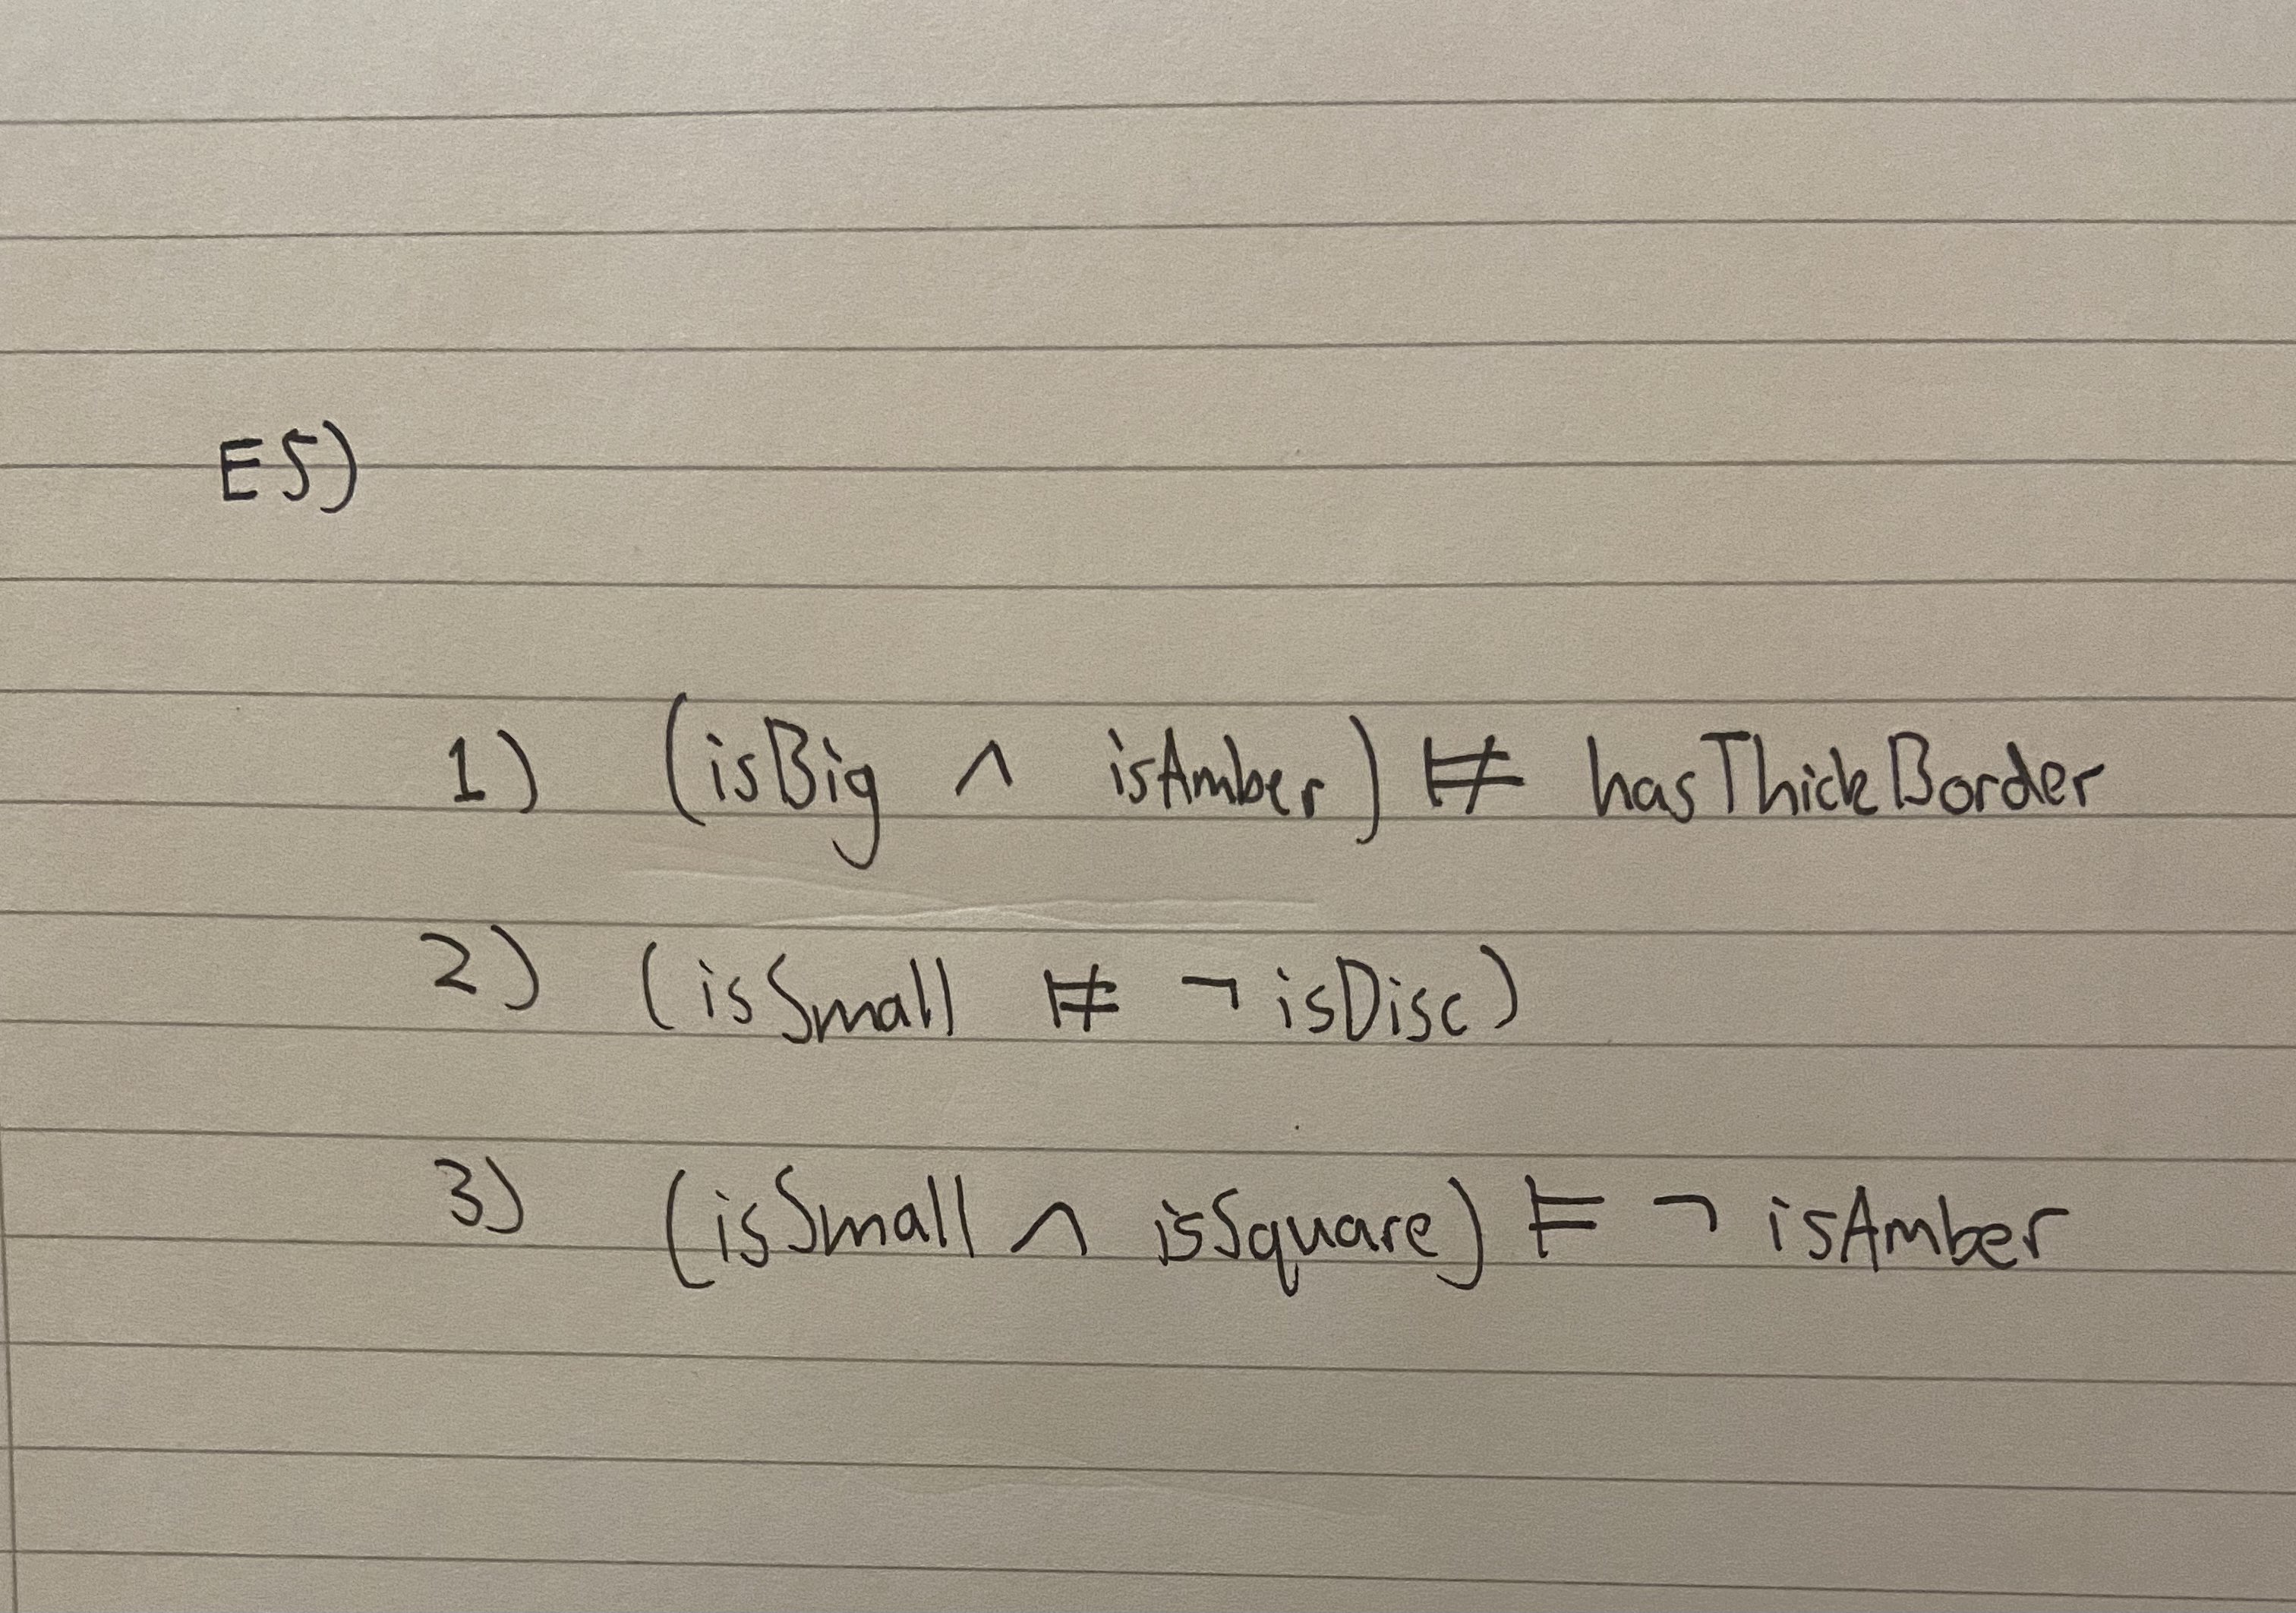 E5)
1) (isBig ∧ isAmber) ⊭ hasThickBorder
2) (isSmall ⊭ ¬ isDisc)
3) (isSmall ∧ isSquare) ⊨ ¬ isAmber